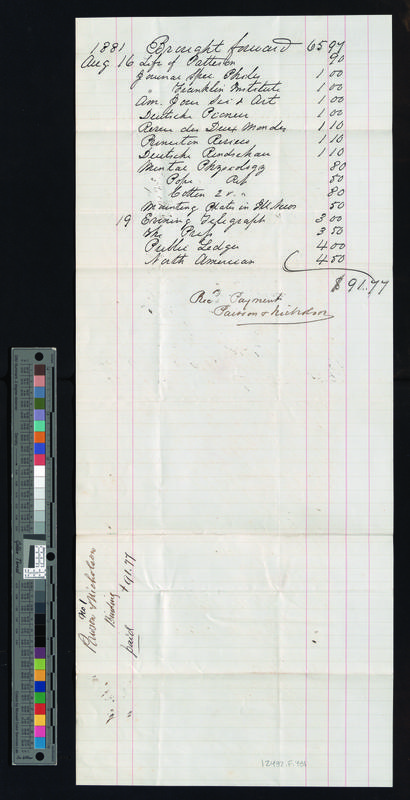 1881 Brought forward 65 97
Aug 16 Life of Patterson 90
Journal Spec Philos 1 00
" Franklin Institute 1 00
Am. Jour Sci & Art 1 00
Deutsche Pioneer 1 00
Revue des Deux Mondes 1 10
Princeton Review 1 10
Deutsche Rundschau 1 10
Mental Physiology 80
" Pope 50
Cotten 2 v. " 80
Mounting Plates in Ill News 50
19 Evening Telegraph 3 00
The Press 3 50
Public Ledger 4 00
North American 4 50
$ 91.77
Recd Payment
Pawson & Nicholson
No 1
Pawson & Nicholson
Binding
$91.77
paid
12492.F.